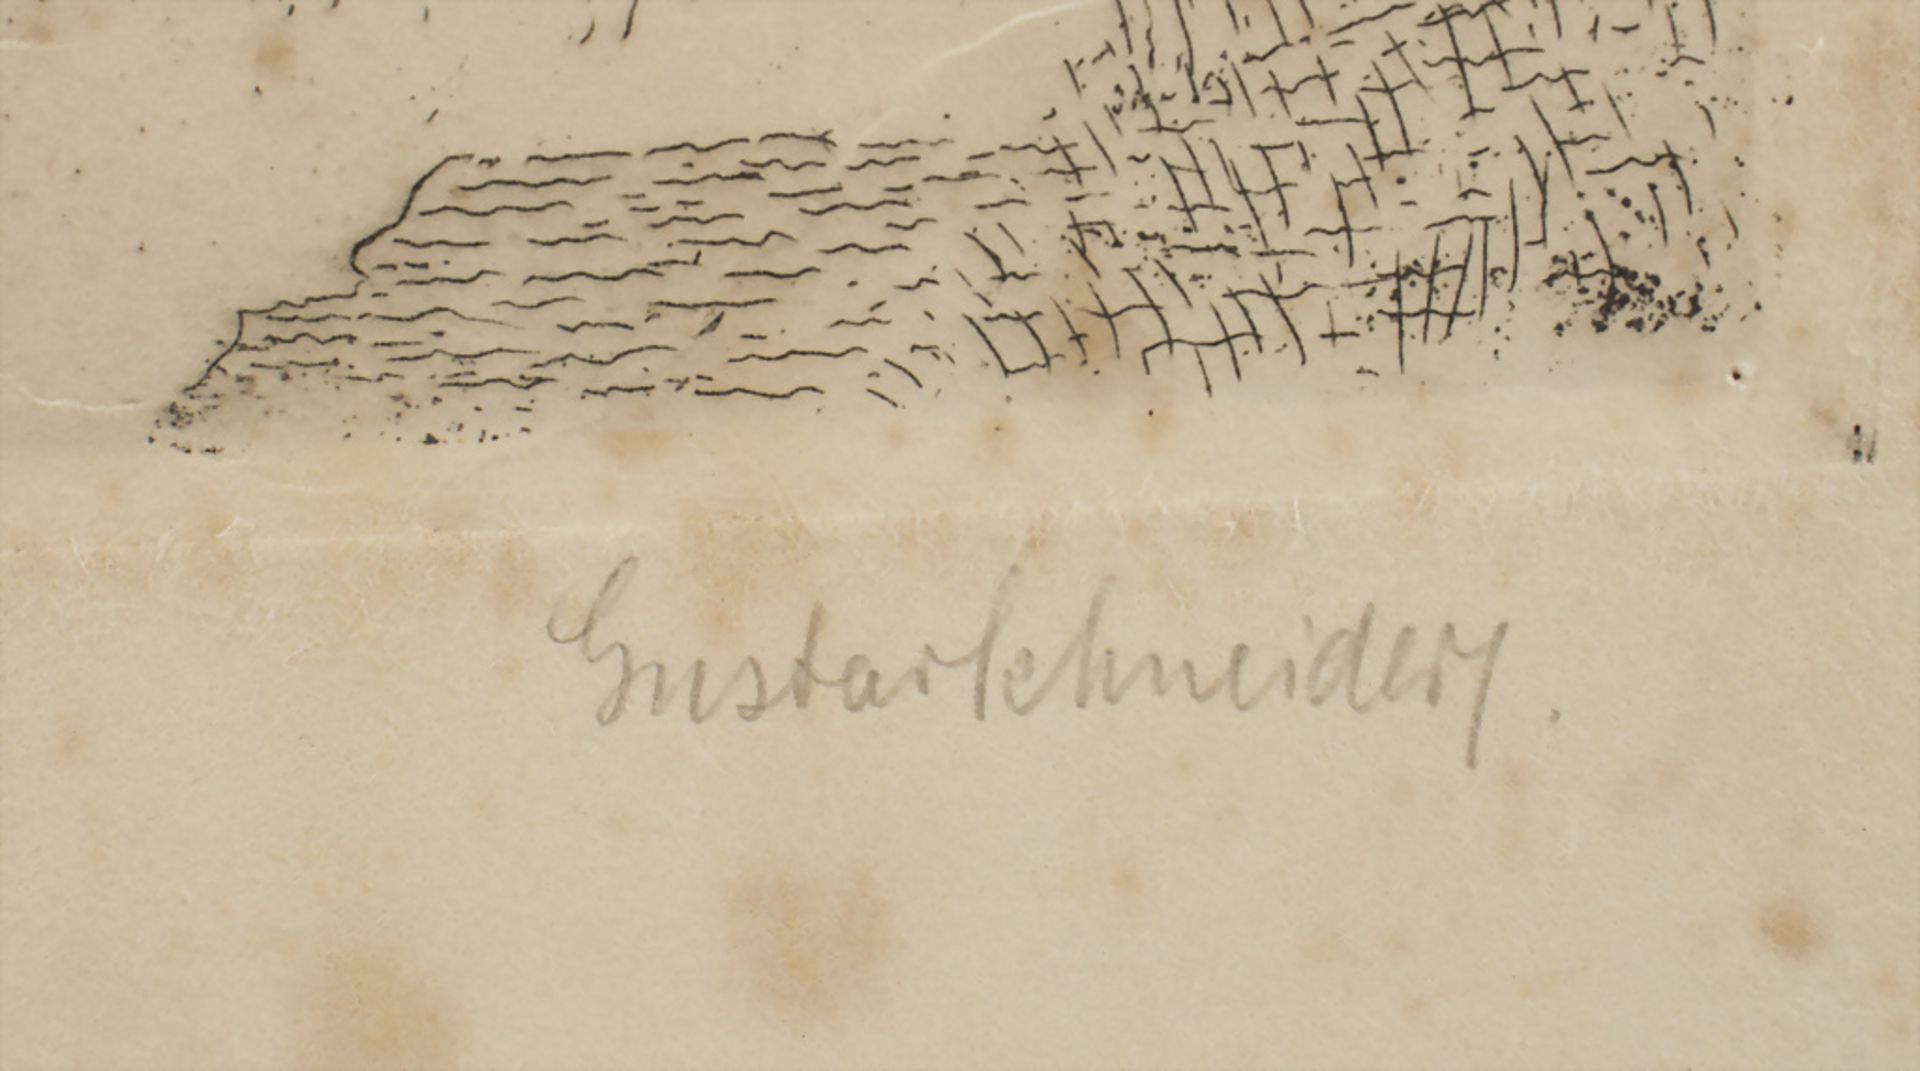 Gustav Schneider.